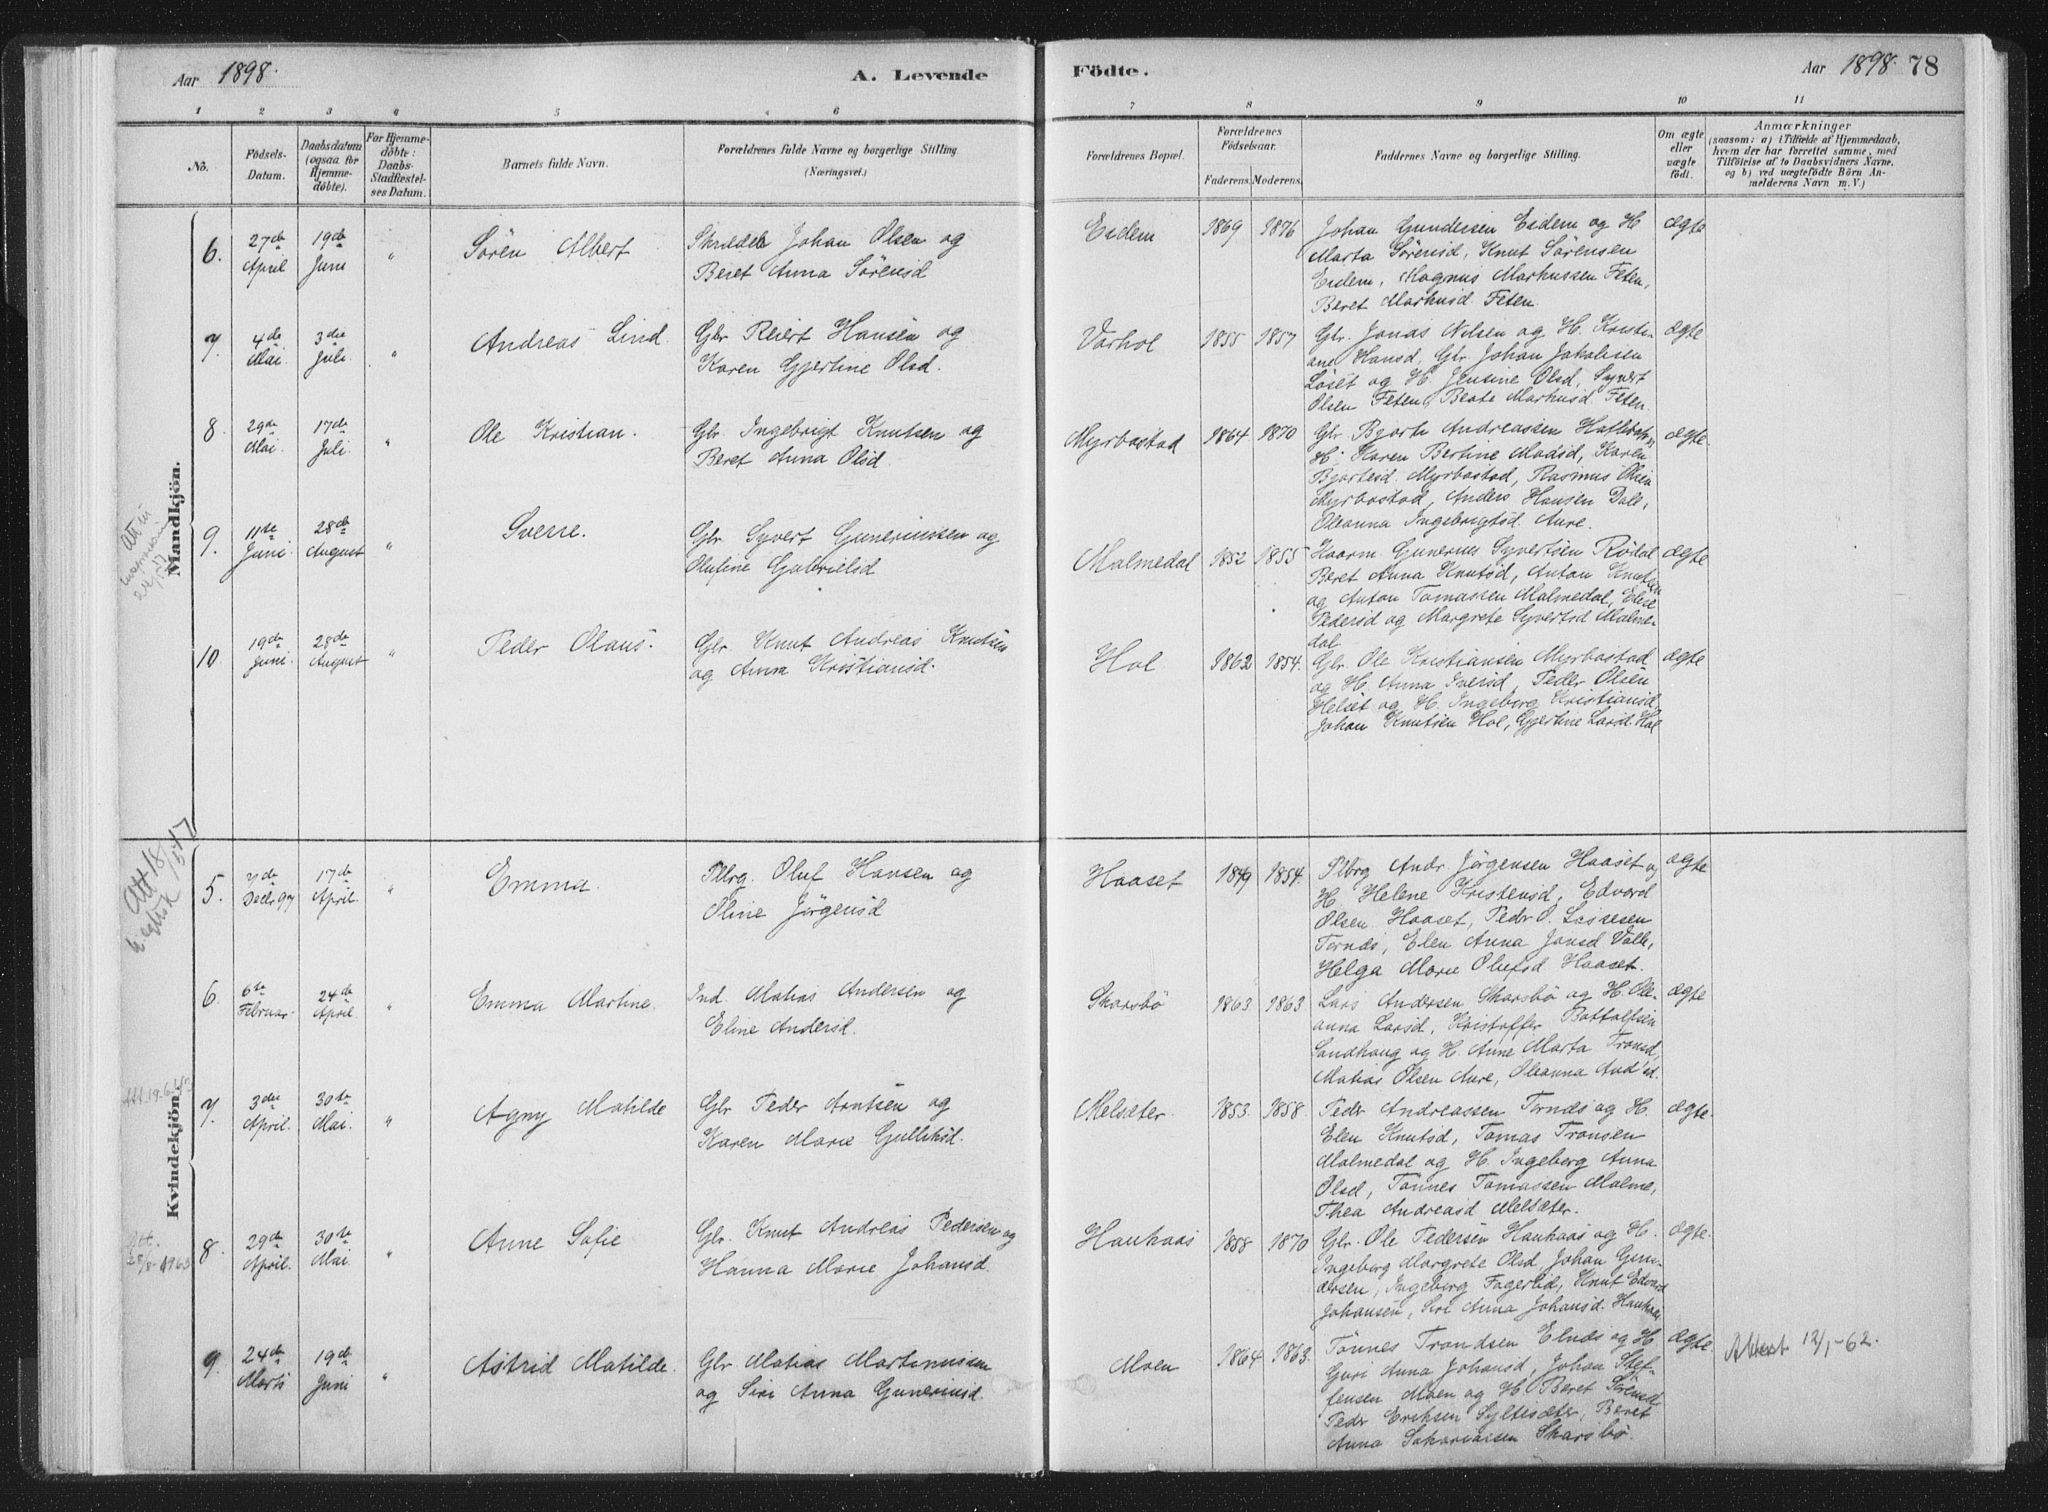 Aar 1898.
A. Levende
Födte.
Aar 1898. 78
1 2 3 4 5 6 7 8 9 10 11
No.
Födsels-
Datum.
Daabsdatum
(ogsaa for
Hjemme-
döbte).
For Hjemme-
döbte:
Daabs-
Stadfæstel-
ses Datum.
Barnets fulde Navn.
Forældrenes fulde Navne og borgerlige Stilling
(Næringsvei.)
Forældrenes Bopæl.
Forældrenes
Födselsaar.
Faderens. Moderens.
Faddernes Navne og borgerlige Stilling.
Om ægte
eller
uægte
födt.
Anmærkninger
(saasom: a) i Tilfælde af Hjemmedaab,
hvem der har forrettet samme, med
Tilföielse af to Daabsvidners Navne,
og b) ved uægtefödte Börn An-
melderens Navn m. V.)
Mandkjön.
6. 27de April 19de Juni " Sören Albert
Johan Olsen og
Beret Anna Sörensd
Eidem 1869 1876
Johan Gundersen Eidem og H
Marta Sørensd, Knut Sørensen
Eidem, Magnus Markussen Feten,
Beret Markusd. Feten.
ægte
7. 4de Mai. 3die Juli. " Andreas Lind.
Gbr Reiert Hansen og
Karen Gjertine Olsd.
Varhol 1855 1857
Gbr. Jonas Nilsen og H. Kristi-
ane Hansd, Gbr Johan Jakobsen
Løset og H. Jensine Olsd, Syvert
Olsen Feten, Beate Markusd Feten.
ægte
8. 29de Mai. 17de Juli. " Ole Kristian.
Gbr. Ingebrigt Knutsen og
Beret Anna Olsd.
Myrbostad 1864 1870
Gbr. Bjarte Andreassen
H. Karen Bertine Madsd, Karen
Bjartesd. Myrbostad, Rasmus Olsen
Myrbostad, Anders Hansen Dale,
Oleanna Ingebrigtsd. Aure.
ægte.
9. 11te Juni. 28de August " Sverre.
Gbr. Syvert Gunerius­sen og
Olufine Gabrielsd
Malmedal 1852 1855
Gunerius Syvertsen Rødal
Beret Anna Knutsd, Anton Knutsen
og Anton Tomassen Malmedal, Elise
Pedersd og Margrete Syvertsd Malme-
dal
ægte
10. 19de Juni. 28de August " Peder Olaus.
Gbr. Knut Andreas Knutsen
og Anna Kristiansd.
Hol 1862 1854.
Gbr. Ole Kristiansen Myrbostad
og H. Anna Iversd, Peder Olsen
Helset og H. Ingeborg Kristiansd,
Johan Knutsen Hol, Gjertine Larsd. Hol
ægte
Kvindekjön.
5. Decbr. 97 17de April. " Emma.
Oluf Hansen og
Oline Jørgensd
Haaset 1849 1854.
Andr Jørgensen Haaset og
H. Helene Kristensd, Edvard
Olsen Haaset, Peder O.
Tornes, Elen Anna Jonsd Valle,
Helga Marie Olufsd Haaset.
ægte
6. 6te Februar. 24de April. " Emma Martine.
Ind. Matias Andersen og
Eline Andersd.
Skarsbö 1863 1863
Lars Andersen Skarsbö og H. Ole-
anna Larsd, Kristoffer Bottolfsen
Sandhaug og H. Anne Marta Tronsd,
Matias Olsen Aure, Oleanna And'sd.
ægte
Att 19.6.
7. 3die April. 30te Mai. " Agny Matilde
Gbr Peder Arntsen og
Karen Marie Gulliksd.
Melsæter. 1853. 1858.
Peder Andreassen Tornes og H.
Elen Knutsd, Tomas Tronsen
Malmedal og H. Ingeborg Anna
Olsd, Tönnes Tomassen Malme,
Thea Andreasd Melsæter.
ægte.
Att. 28/8-1963
8. 29de April. 30te Mai. " Anne Sofie
Gbr. Knut Andreas Pedersen og
Hanna Marie Johansd.
Haukaas 1858 1870
Gbr. Ole Pedersen Haukaas og H.
Ingeborg Margrete Olsd, Johan Gun-
dersen, Ingeborg Fagerlid, Knut Edvard
Johansen, Siri Anna Johansd. Haukaas
ægte.
9. 24de Marts 19de Juni " Astrid Matilde.
Gbr Matias Martinussen
og Siri Anna Guneriusd.
Moen 1864 1863.
Tönnes Trondsen Elnes og H
Guri Anna Johansd, Johan Stef-
fensen Moen og H Beret Sörensd
Peder Eriksen Syltesæter, Beret
Anna Sakariasen Skarsbö.
ægte
Attest 12/1-62.